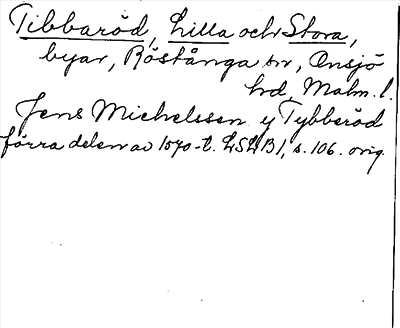 Tibbaröd, Lilla och Stora,
byar, Röstånga sn, Onsjö
hd, Malm. l.
Jens Michelssen y Tybberöd
förra delen av 1570-t. LSLB 1, s. 106. orig.